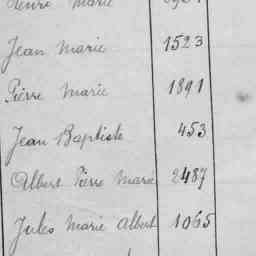 Marie
Jean Marie 1523
Pierre Marie 1891
Jean Baptiste 453
Albert Pierre Marie 2487
Jules Marie Albert 1065